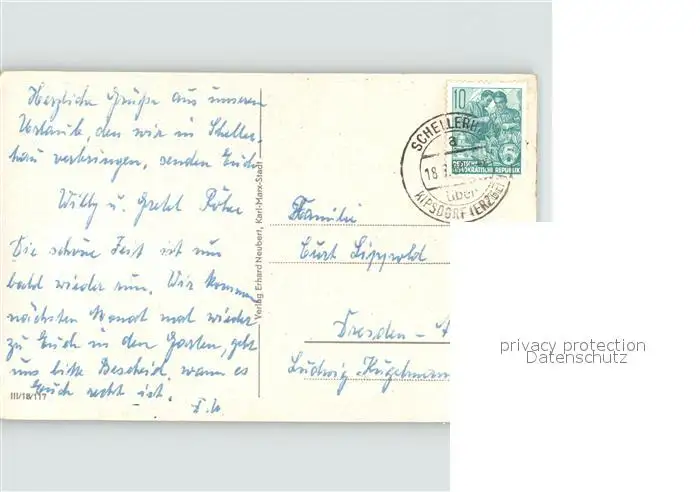 Herzliche Grüße aus unseren
Urlaub, den wir in Scheller-
hau verbringen, senden Euch
Willy u. Gretel
Die schöne Zeit ist nun
bald wieder rum. Wir kommen
nächsten Monat mal wieder
zu Euch in den Garten, gebt
uns bitte Bescheid, wann es
Euch recht ist.
III/18/117
Verlag Erhard Neubert, Karl-Marx-Stadt
10
DEUTSCHE
DEMOKRATISCHE REPUBLIK
SCHELLERH
a
18
über
KIPSDORF (ERZGEB
Familie
Curt Lippold
Dresden - A
Ludwig Kugelmann
privacy protection
Datenschutz